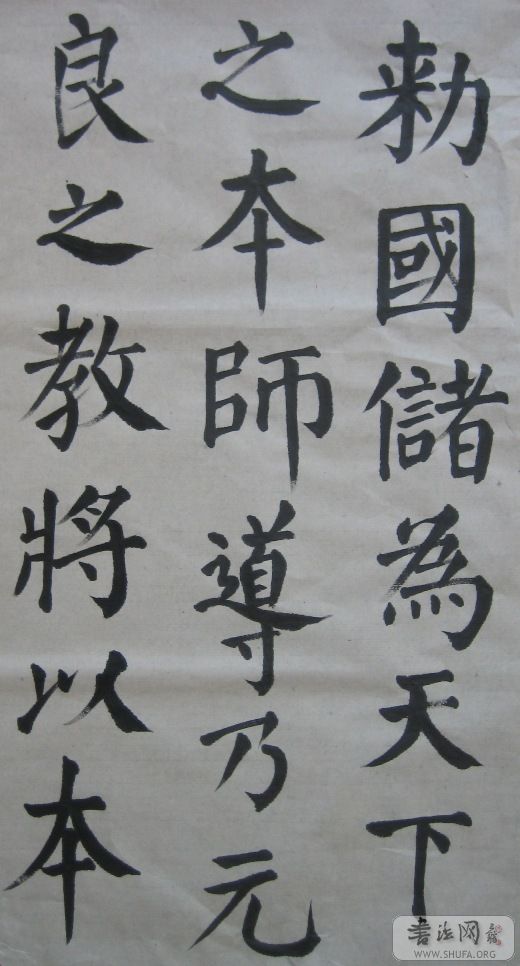 勑國儲為天下
之本師導乃元
良之教將以本
書法网
WWW.SHUFA.ORG